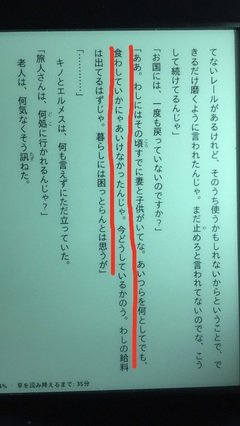 てないレールがあるけれど、そのうち使うかもしれないからということで、で
きるだけ磨くように言われたんじゃ。まだ止めろと言われてないのでな、こう
して続けてるんじゃ」
「お国には、一度も戻っていないのですか？」
「ああ。わしにはその頃すでに妻と子供がいてな。あいつらを何としてでも、
食わしていかにゃあいけなかったんじゃ。今どうしているかのう。わしの給料
は出てるはずじゃ。暮らしには困っとらんとは思うが」
「…………」
キノとエルメスは、何も言えずにただ立っていた。
「旅人さんは、何処に行かれるんじゃ？」
老人は、何気なくそう訊ねた。
章を読み終えるまで: 35分